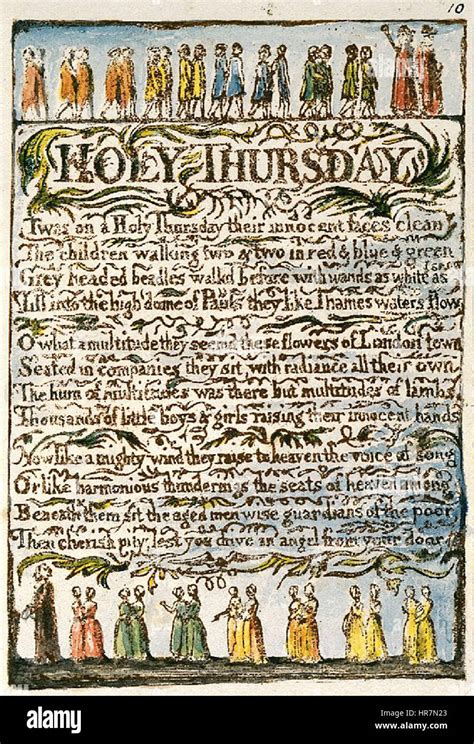 10
HOLY THURSDAY
Twas on a Holy Thursday their innocent faces clean
The children walking two & two in red & blue & green
Grey headed beadles walkd before with wands as white as
Till into the high dome of Pauls they like Thames waters flow
O what a multitude they seemd these flowers of London town
Seated in companies they sit with radiance all their own
The hum of multitudes was there but multitudes of lambs
Thousands of little boys & girls raising their innocent hands
Now like a mighty wind they raise to heaven the voice of song
Or like harmonious thunderings the seats of heaven among
Beneath them sit the aged men wise guardians of the poor
Then cherish pity, lest you drive an angel from your door
alamy stock photo
HR7N23
www.alamy.com